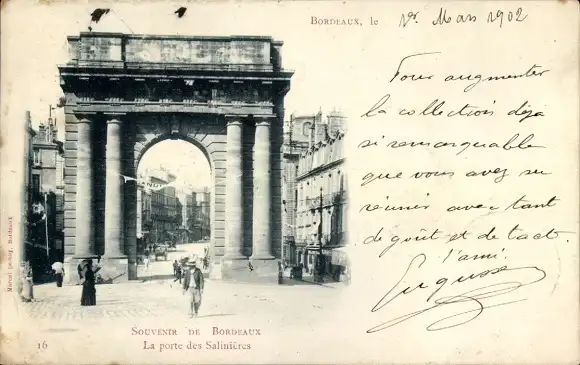 Bordeaux, le 1er. Mars 1902
Pour augmenter
la collection déjà
si remarquable
que vous avez su
réunir avec tant
de goût et de tact.
l'ami.
Souvenir de Bordeaux
La porte des Salinières
16